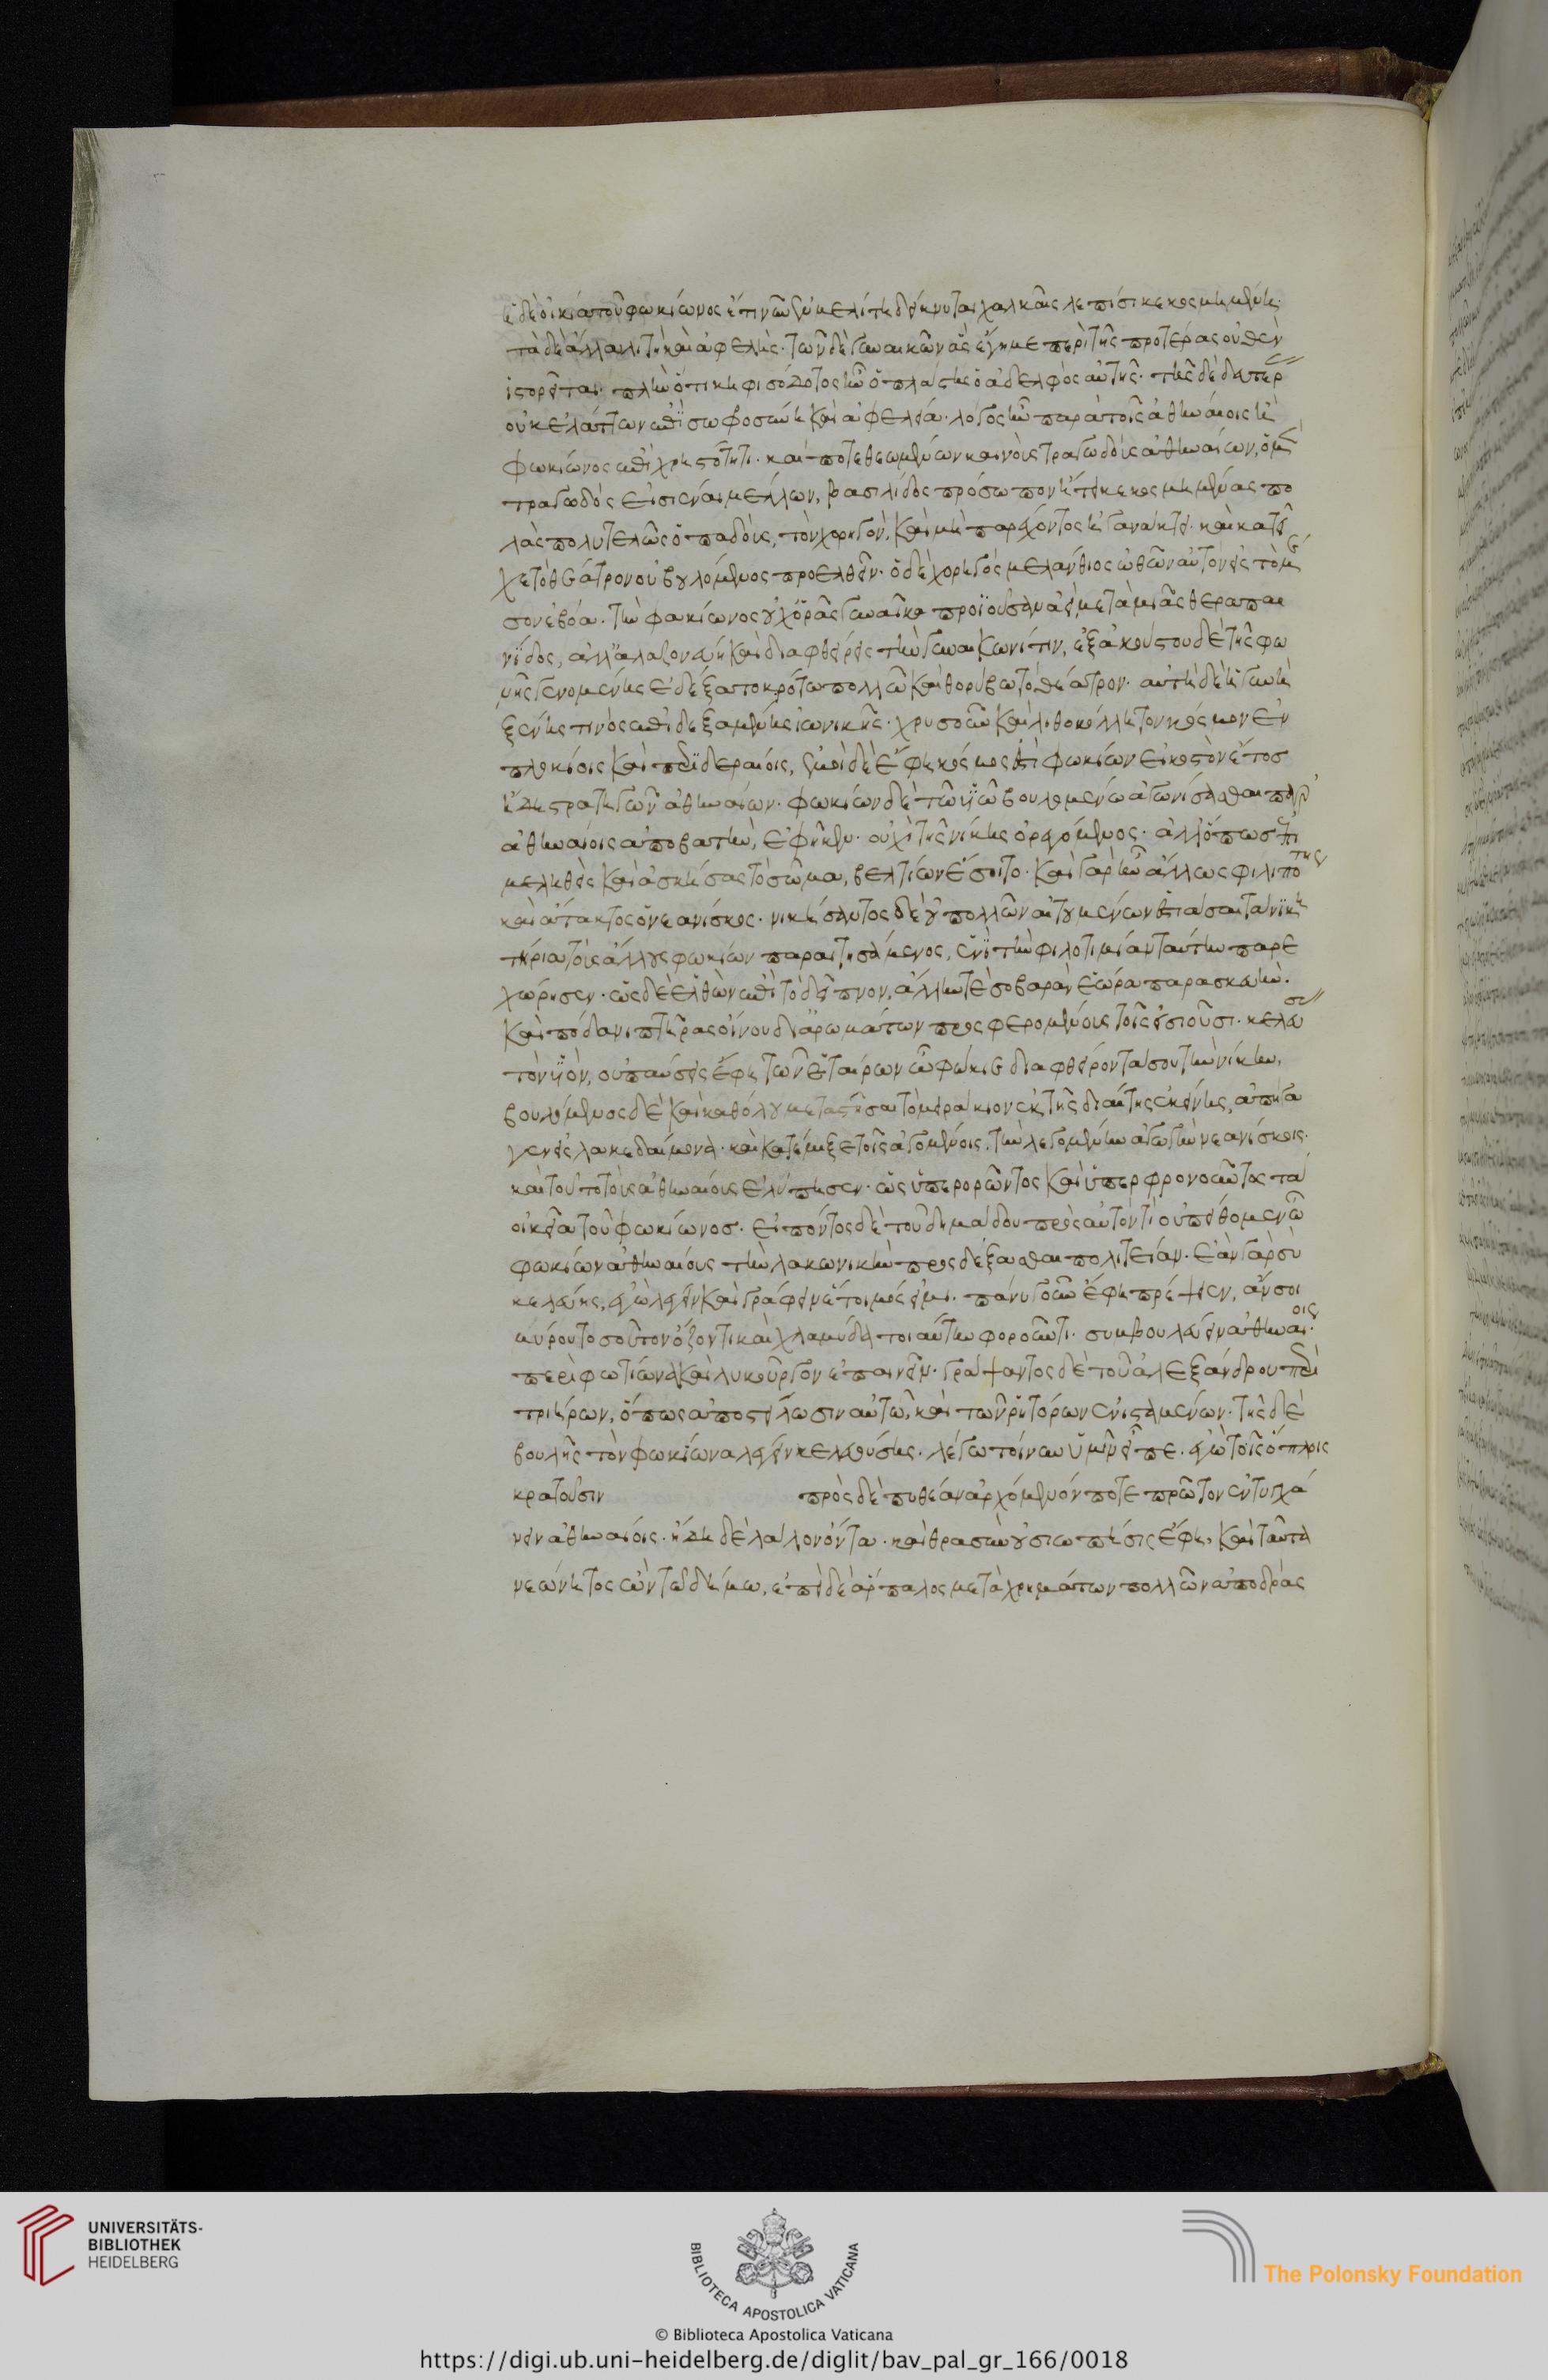 ἡ δὲ οἰκία τοῦ φωκίωνος ἔτι νῦν ἐν μελίτη δείκνυται χαλκαῖς λεπίσι κεκοσμημένη·
τὰ δὲ ἄλλα λιτὴ καὶ ἀφελής· τῶν δὲ γυναικῶν ἃς ἔγημε περὶ τῆς προτέρας οὐθὲν
ἱστορεῖται· πλὴν ὅτι κηφισόδοτος ἦν ὁ πλάστης ὁ ἀδελφὸς αὐτῆς· τῆς δὲ δευτέρ
οὐκ ἐλάττων ἐπὶ σωφροσύνη καὶ ἀφελεία· λόγος ἦν παρὰ τοῖς ἀθηναίοις ἢ
φωκίωνος ἐπὶ χρηστότητι· καί ποτε θεωμένων καινοὺς τραγωδοὺς ἀθηναίων, ὁ μὲν
τραγωδὸς εἰσιέναι μέλλων, βασιλίδος πρόσωπον ἤτει κεκοσμημένας πο
λὰς πολυτελῶς ὀπαδοὺς, τὸν χορηγὸν, καὶ μὴ παρέχοντος ἠγανάκτει· καὶ κατεῖ
χε τὸ θέατρον οὐ βουλόμενος προελθεῖν· ὁ δὲ χορηγὸς μελάνθιος ὠθῶν αὐτὸν εἰς τὸ μέ
σον ἐβόα· τὴν φωκίωνος οὐχ ὁρᾶς γυναῖκα προϊοῦσαν ἀεὶ μετὰ μιᾶς θεραπαι
νίδος, ἀλλ' ἀλαζονεύη καὶ διαφθείρεις τὴν γυναικωνίτιν, ἐξακούστου δὲ τῆς φω
νῆς γενομένης ἐδέξατο κρότω πολλῶ καὶ θορύβω τὸ θέατρον· αὐτὴ δὲ ἡ γυνὴ
ξένης τινὸς ἐπιδειξαμένης ἰωνικῆς· χρυσοῦν καὶ λιθοκόλλητον κόσμον ἐν
πλοκίοις καὶ περιδεραίοις, ἐμοὶ δὲ ἔφη κόσμος ἐστὶ φωκίων εἰκοστὸν ἔτος
ἤδη στρατηγῶν ἀθηναίων· φωκίωνι δὲ τῶ υἱῶ βουλομένω ἀγωνίσασθαι
ἀθηναίοις ἀποβάτην, ἐφῆκεν· οὐχὶ τῆς νίκης ὀρεγόμενος· ἀλλ' ὅπως ἐπι
μεληθεὶς καὶ ἀσκήσας τὸ σῶμα, βελτίων ἔσοιτο· καὶ γὰρ ἦν ἄλλως φιλοπότης
καὶ ἄτακτος ὁ νεανίσκος· νικήσαντος δὲ οὐ πολλῶν αἰτουμένων ἑστιάσαι τὰ νικη
τήρια τοῖς ἄλλοις φωκίων παραιτησάμενος, ἑνὶ τὴν φιλοτιμίαν ταύτην παρε
χώρησεν· ὡς δὲ ἐλθὼν ἐπὶ τὸ δεῖπνον, ἄλλην τε σοβαρὰν ἑώρα παρασκευήν·
καὶ ποδανιπτῆρας οἴνου δι' ἀρωμάτων προσφερομένους τοῖς εἰσιοῦσι· κελεύσας
τὸν υἱὸν, οὐ παύσεις ἔφη τῶν ἑταίρων ὦ φῶκε διαφθείροντά σου τὴν νίκην,
βουλόμενος δὲ καὶ καθόλου μεταστῆσαι τὸ μειράκιον ἐκ τῆς διαίτης ἐκείνης, ἀπήγα
γεν εἰς λακεδαίμονα· καὶ κατέμιξε τοῖς ἀγομένοις, τὴν λεγομένην ἀγωγὴν νεανίσκοις·
καὶ τοῦτο τοὺς ἀθηναίους ἐλύπησεν· ὡς ὑπερορῶντος καὶ ὑπερφρονοῦντος τὰ
οἰκεῖα τοῦ φωκίωνος· εἰπόντος δὲ τοῦ δημάδου πρὸς αὐτὸν τί οὐ πείθομεν ὦ
φωκίων ἀθηναίους τὴν λακωνικὴν προσδέξασθαι πολιτείαν· ἐὰν γὰρ σὺ
κελεύης, ἐγὼ λέγειν καὶ γράφειν ἕτοιμός εἰμι. πάνυ γοῦν ἔφη πρέψειεν, ἄν σοι
μύρου τοσοῦτον ὄζοντι καὶ χλαμύδα τοιαύτην φοροῦντι· συμβουλεύειν ἀθηναίοις
περὶ φωτιῶν καὶ λυκοῦργον ἐπαινεῖν· γράψαντος δὲ τοῦ ἀλεξάνδρου περὶ
τριήρων, ὅπως ἀποστείλωσιν αὐτῶ, καὶ τῶν ῥητόρων ἐνισταμένων· τῆς δὲ
βουλῆς τὸν φωκίωνα λέγειν κελευούσης· λέγω τοίνυν ὑμῖν εἶπε· ἢ τοῖς ὅπλοις
κρατοῦσιν πρὸς δὲ πυθέαν ἀρχόμενόν ποτε πρῶτον ἐντυγχά
νειν ἀθηναίοις· ἤδη δὲ λάλον ὄντα· καὶ θρασὺν οὐ σιωπήσεις ἔφη, καὶ ταῦτα
νεώνητος ὢν τῶ δήμω, ἐπεὶ δὲ ἅρπαλος μετὰ χρημάτων πολλῶν ἀποδρὰς
UNIVERSITÄTS-
BIBLIOTHEK
HEIDELBERG
BIBLIOTECA APOSTOLICA VATICANA
The Polonsky Foundation
© Biblioteca Apostolica Vaticana
https://digi.ub.uni-heidelberg.de/diglit/bav_pal_gr_166/0018